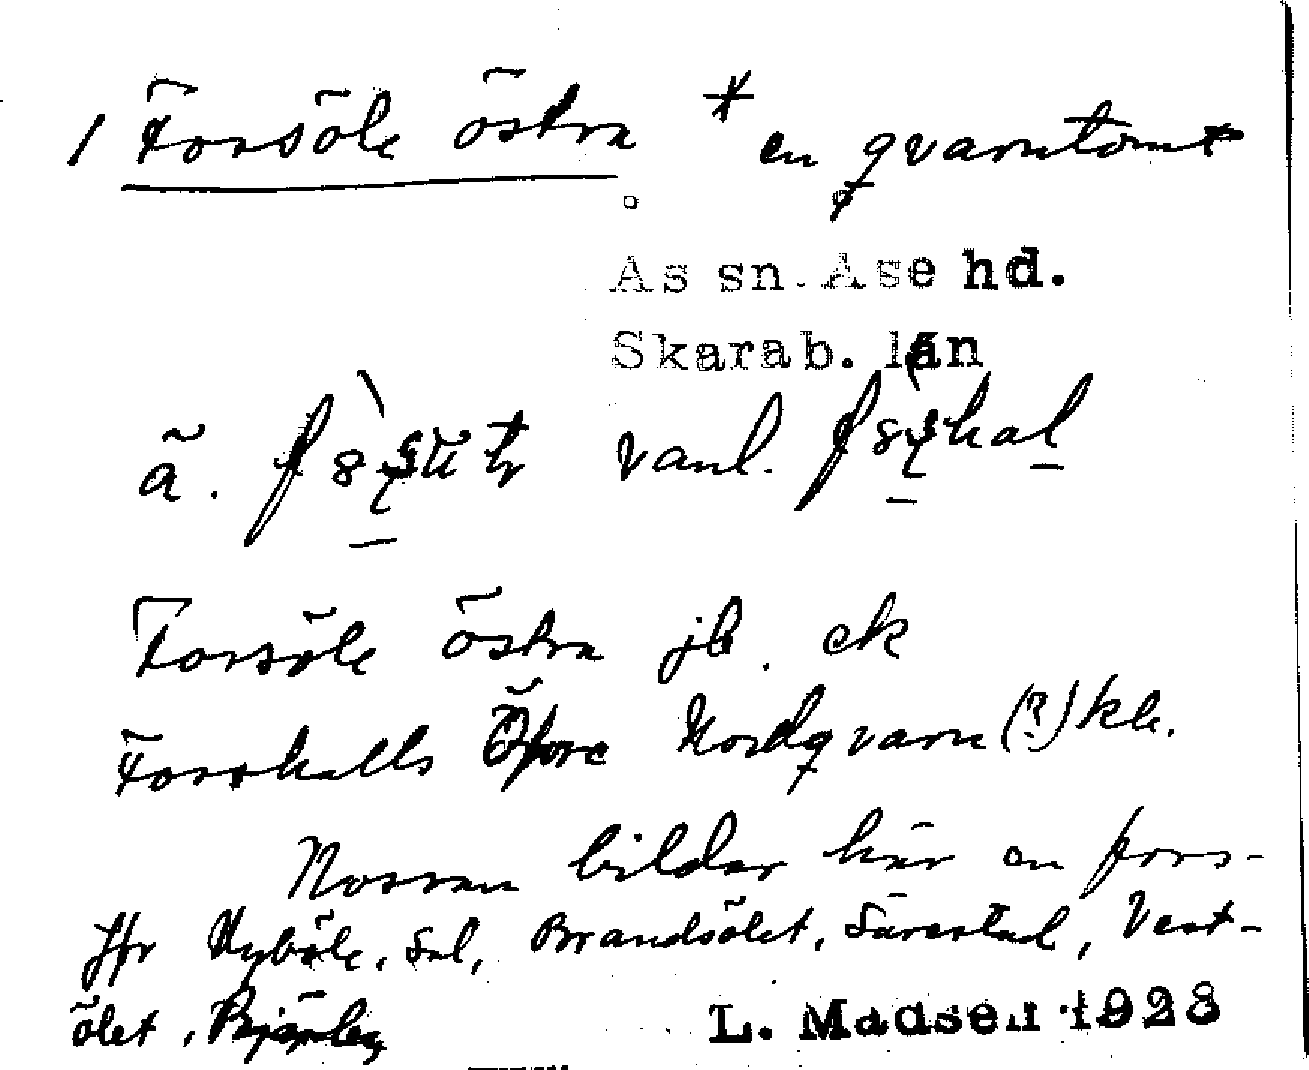 1 Forsöle östra * en qvarntomt
Ås sn. Åse hd.
Skarab. län
ä. vanl.
Forsöle östra jb. ek
Forshalls Öfre Nordqvarn (?) kb.
Nossan bildar här en fors-
Jfr Nyböle, Sal, Brandsölet, Särestad, Vest-
ölet,
L. Madsen 1928